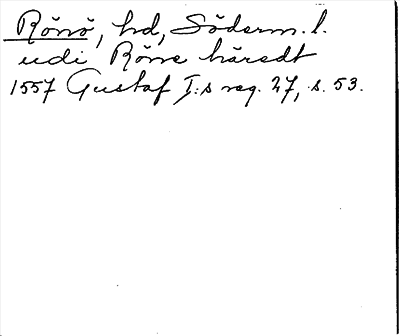 Rönö, hd, Söderm. l.
udi Röne häredt
1557 Gustaf I:s reg. 27, s. 53.